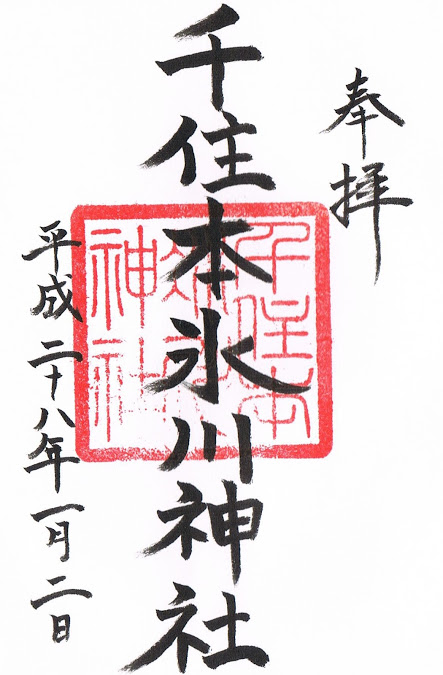 奉拝
千住本氷川神社
千住本
氷川
神社
平成二十八年一月二日